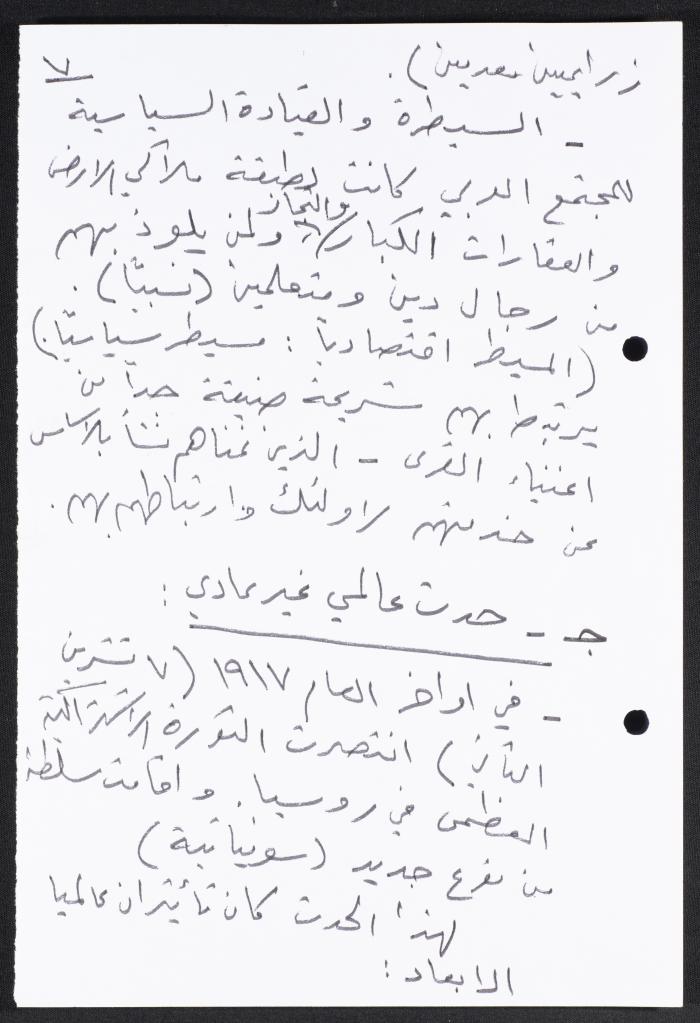 ٧
زراعيين معدمين).
- السيطرة والقيادة السياسية
للمجتمع العربي كانت لطبقة ملاكي الارض
والعقارات الكبار والتجار ولمن يلوذ بهم
من رجال دين ومتعلمين (نسبيّاً).
(المسيطر اقتصادياً: مسيطر سياسيّاً.)
يرتبط بهم شريحة ضيقة جداً من
اغنياء القرى - الذين غناهم نشأ بالاساس
عن خدمتهم لاولئك وارتباطهم بهم.
جـ - حدث عالمي غير عادي:
- في اواخر العام ١٩١٧ (٧ تشرين
الثاني) انتصرت الثورة الاشتراكية
العظمى في روسيا. واقامت سلطة
من نوع جديد (سوفياتية)
لهذا الحدث كان تأثيران عالميا
الابعاد: